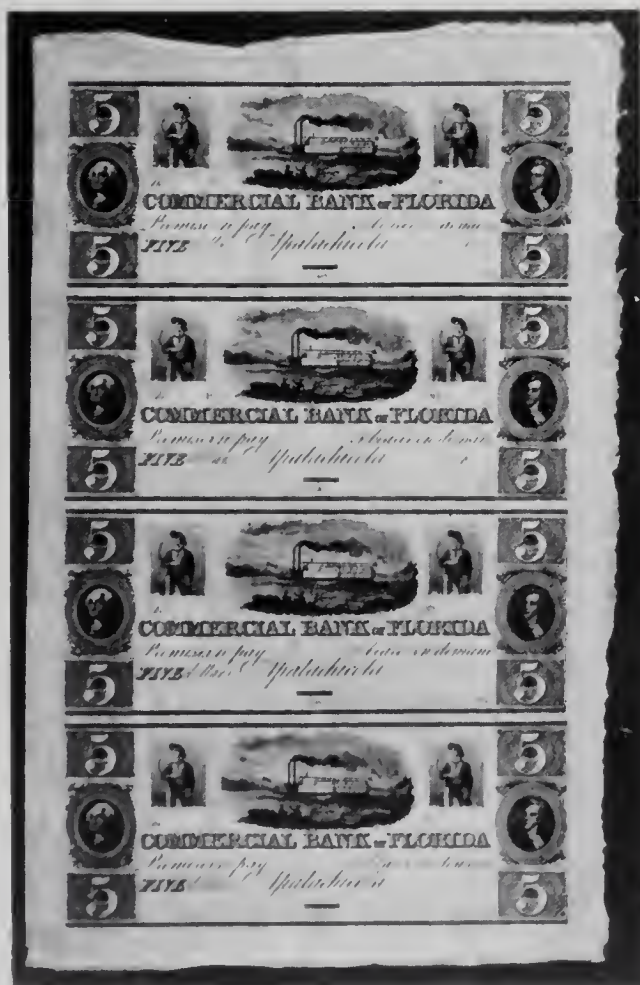 5 5
COMMERCIAL BANK OF FLORIDA
Promise to pay
FIVE Apalachicola
5 5
5 5
COMMERCIAL BANK OF FLORIDA
Promise to pay
FIVE Apalachicola
5 5
5 5
COMMERCIAL BANK OF FLORIDA
Promise to pay
FIVE Apalachicola
5 5
5 5
COMMERCIAL BANK OF FLORIDA
Promise to pay
FIVE Apalachicola
5 5